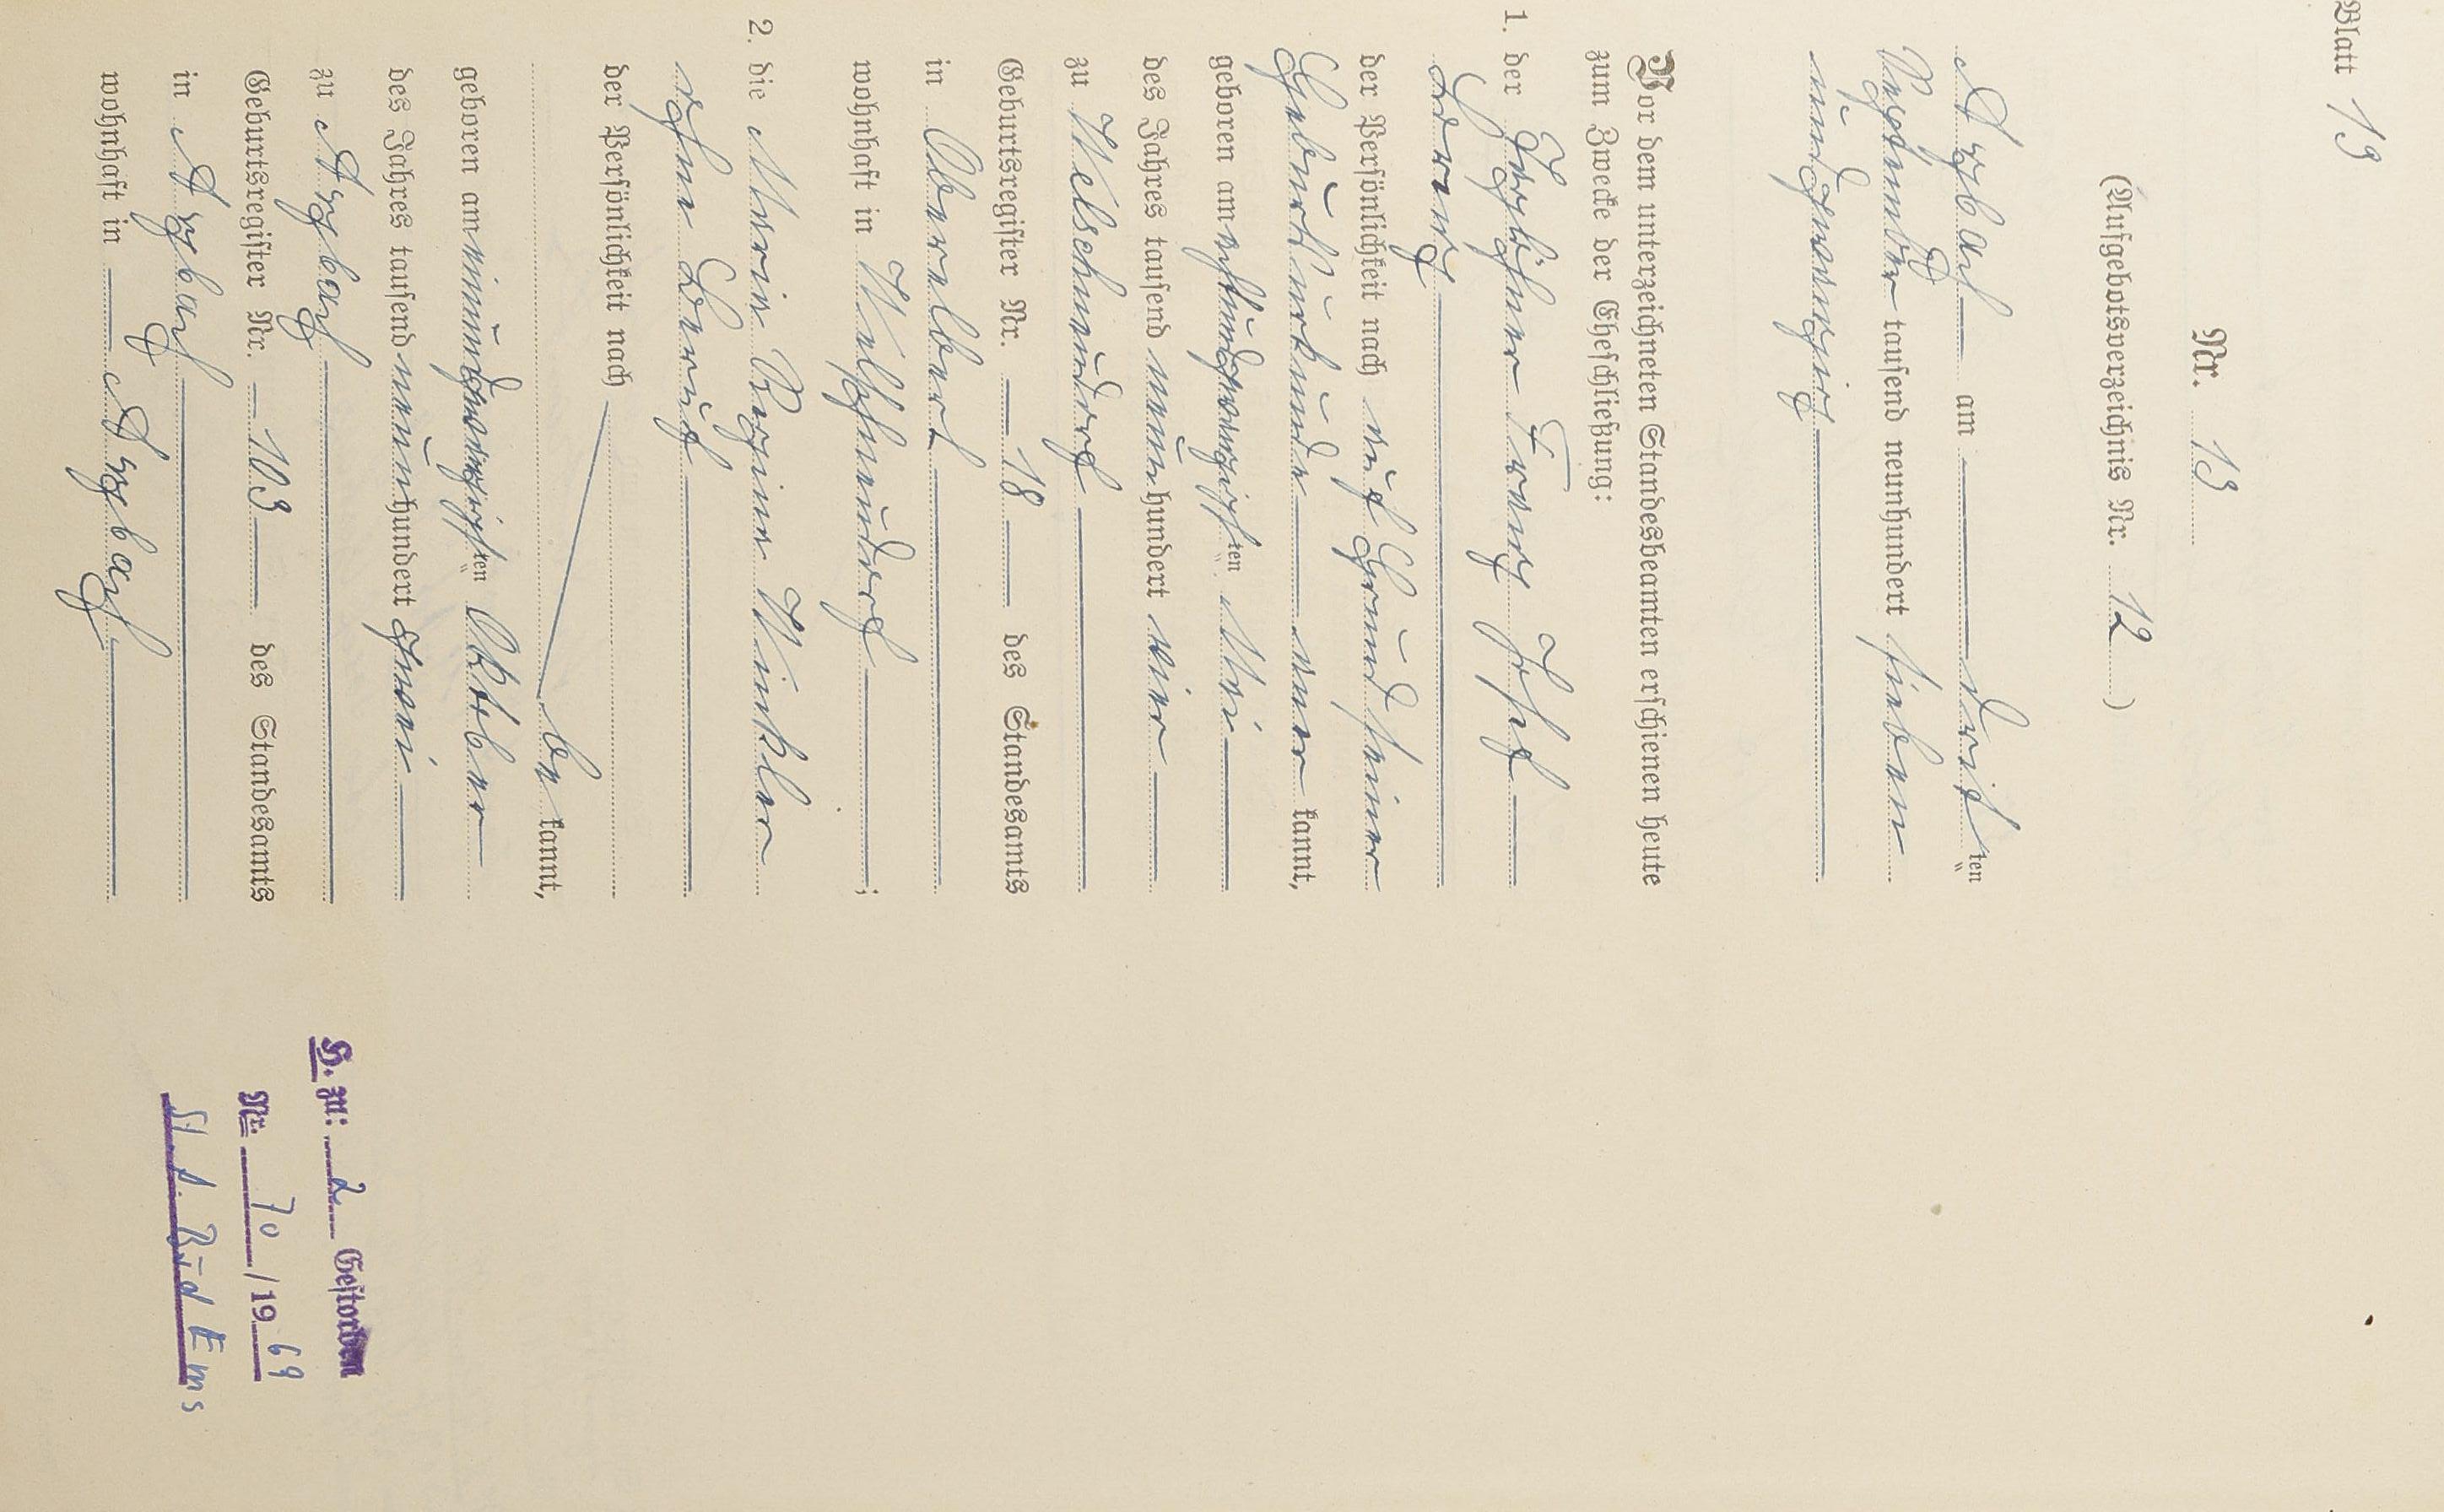 Blatt 13
Nr. 13
(Aufgebotsverzeichnis Nr. 12)
Arzbach am dritten
September tausend neunhundert sieben
undzwanzig
Vor dem unterzeichneten Standesbeamten erschienen heute
zum Zwecke der Eheschließung:
1. der Tagelöhner Franz Josef
Lorenz
der Persönlichkeit nach auf Grund seiner
Geburtsurkunde aner kannt,
geboren am achtundzwanzigsten Mai
des Jahres tausend neunhundert vier
zu Welschneudorf
Geburtsregister Nr. 18 des Standesamts
in Oberelbert
wohnhaft in Welschneudorf;
2. die Maria Regina Winkler
ohne Beruf
der Persönlichkeit nach
be kannt,
geboren am einundzwanzigsten Oktober
des Jahres tausend neunhundert zwei
zu Arzbach
Geburtsregister Nr. 103 des Standesamts
in Arzbach
wohnhaft in Arzbach
H. zu: 2 Gestorben
Nr. 70/1969
St. A. Bad Ems